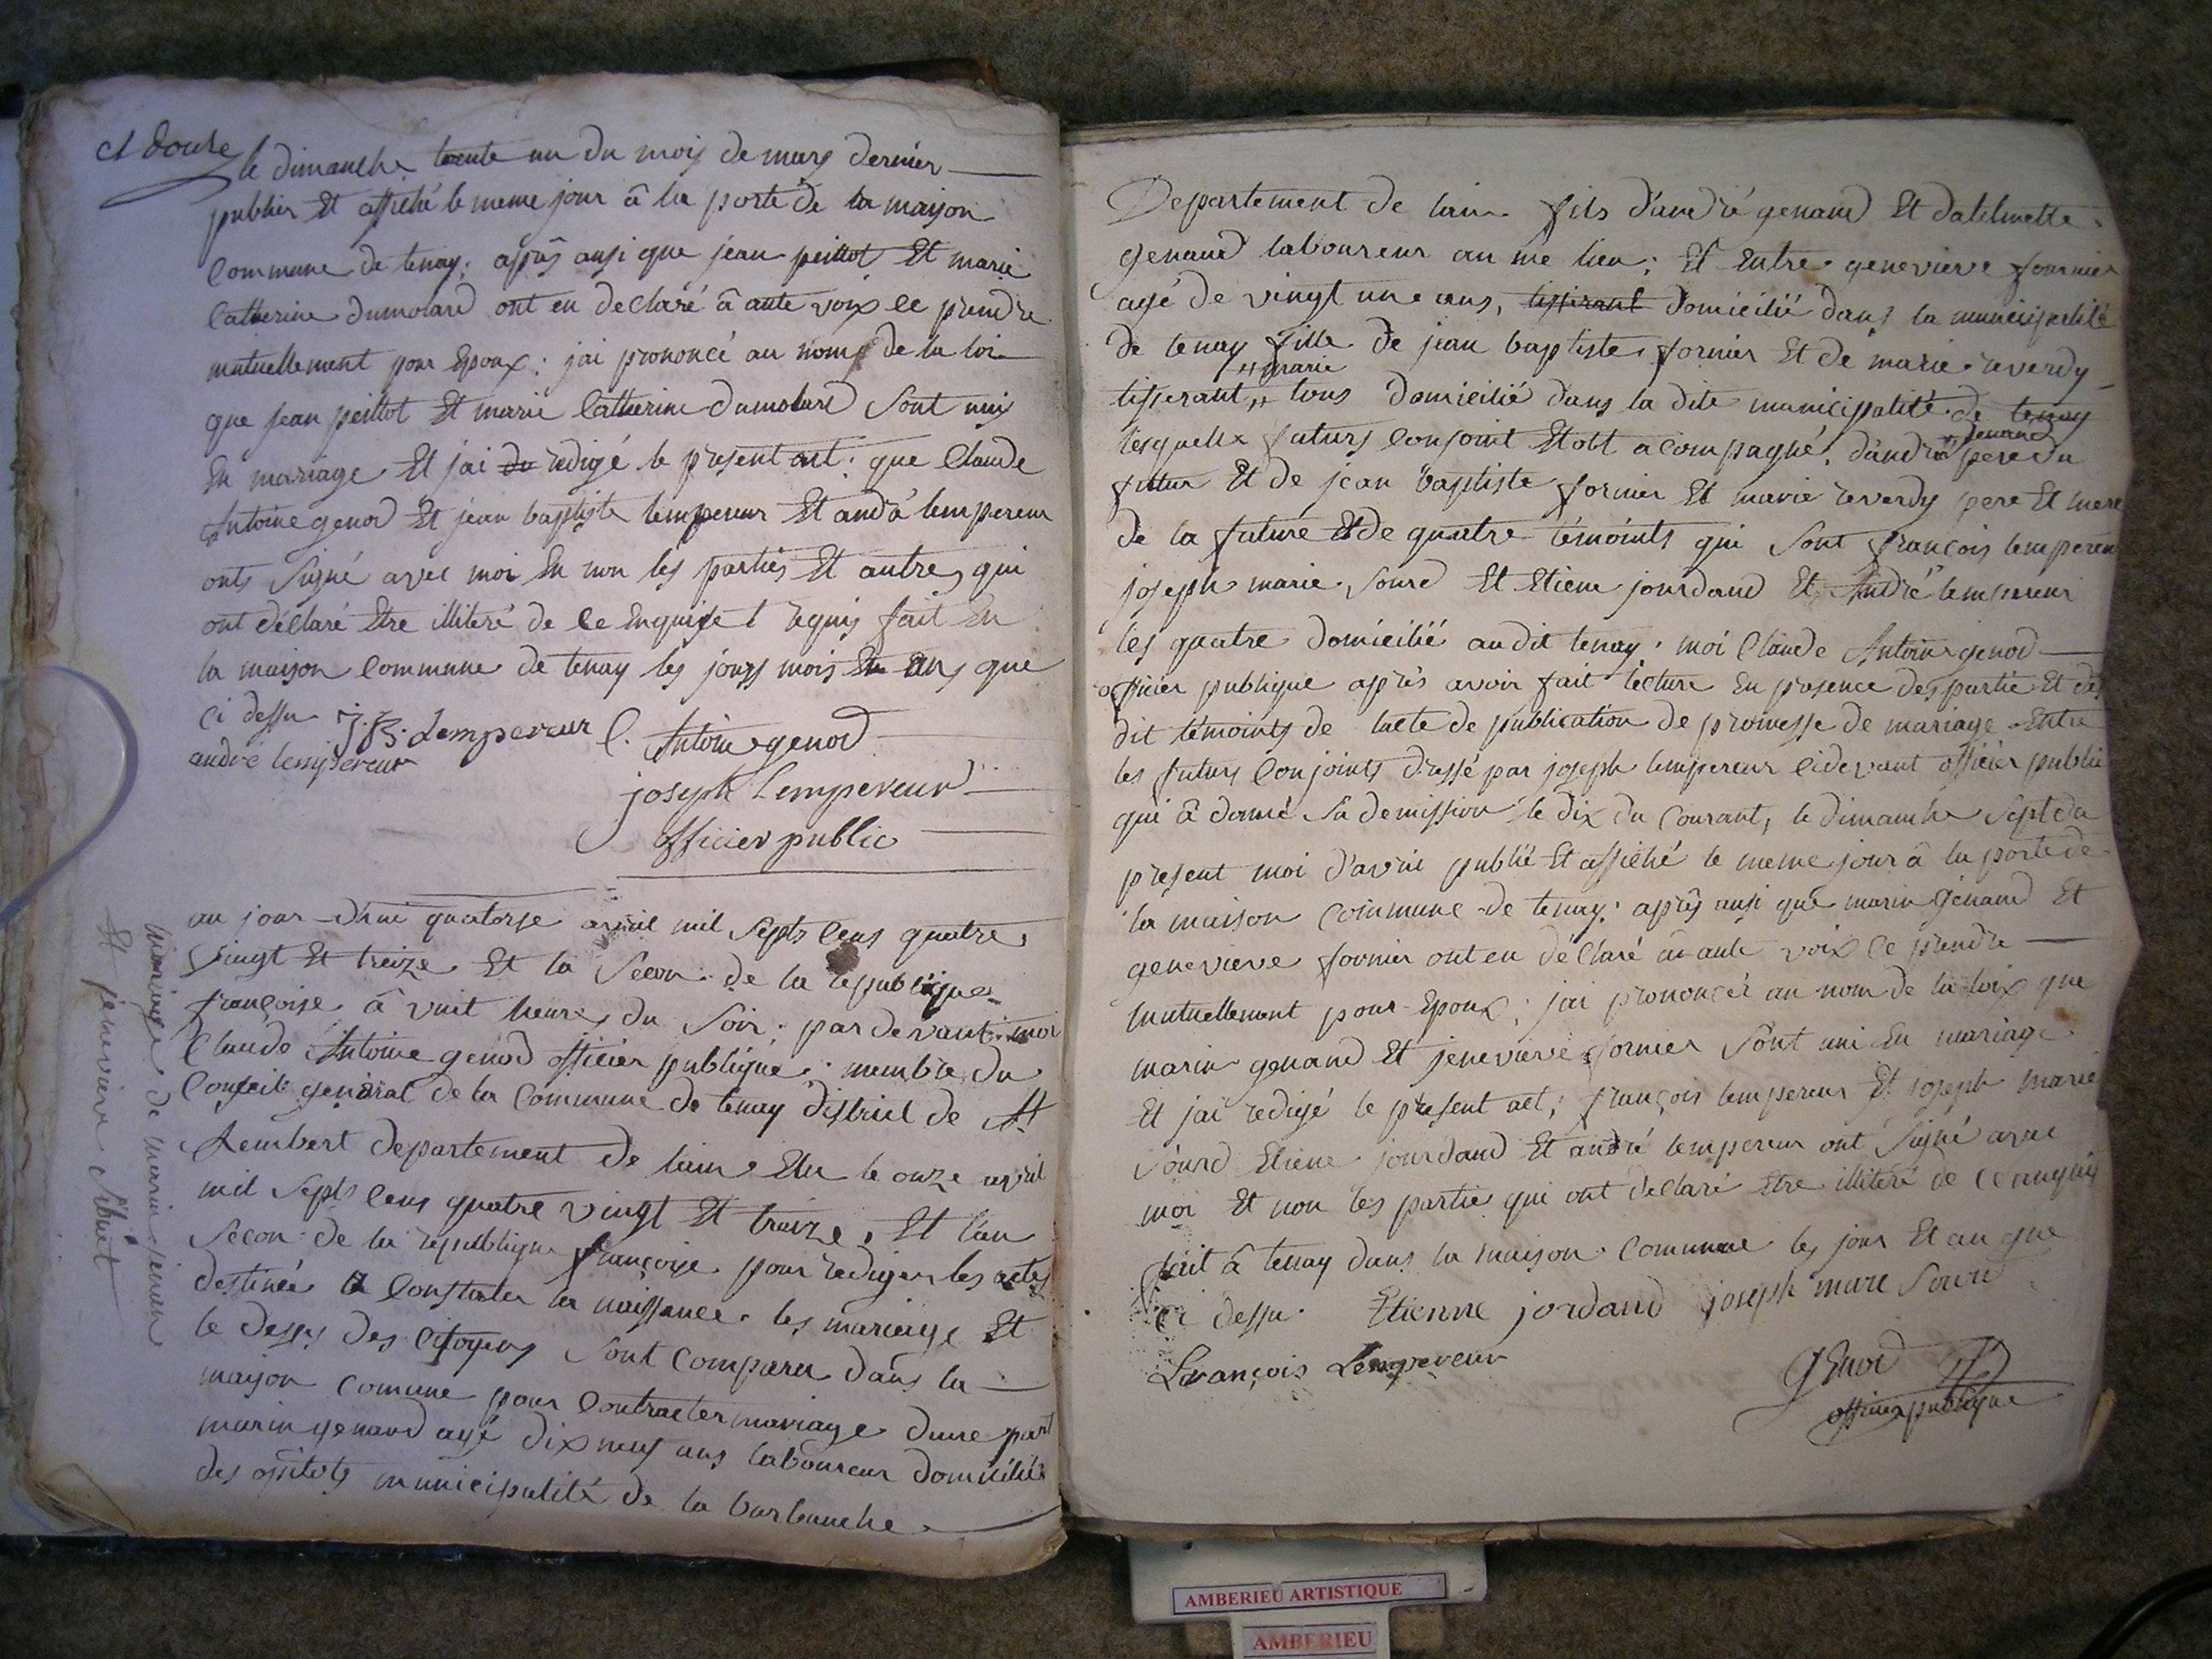 et douse
le dimanche trente un du mois de mars dernier
publier Et affiché le meme jour â la porte de la maison
Commune de tenay; aprâs ansi que jean peittot Et marie
Catherine dumolard ont eu declaré â aute voix ce prendre
mutuellement pour Epoux: jai prononcé au nom de la loi
que jean peittot Et marie Catherine dumolard Sont unis
En mariage Et jai du redigé le present act: que Claude
Antoine genod Et jean baptiste lempereur Et andré lempereur
onts Signé avec moi En non les parties Et autres qui
ont déclaré Etre illiteré de ce Enquis et requis fait En
la maison Commune de tenay les jours mois En ans que
Ci dessu J.B. Lempereur C. Antoine genod
andré lempereur
joseph Lempereur
officier public
au jour-dhui quatorse avril mil Septs Cens quatre
vingt Et treize Et la Secon de la republique
françoise â vuit heures du Soir. par devant moi
Claude Antoine genod officier publique. membre du
Conseil general de la Commune de tenay district de St
Rembert departement de lain Elu le onze avril
mil Septs Cens quatre vingt Et treize. Et l'an
Secon de la republique françoise pour rediger les actes
destinée a Constater la naissance. les mariage Et
le dessés des Citoyens Sont comparu dans la
maison comune pour Contracter mariage dune part
marin genand agé dix neuf ans laboureur domicilié
des opitots municipalité de la burbanche
mariage de marin jenan
Et jenevieve Sibuet
Departement de lain fils d'andré genand Et
genand laboureur au me lieu; Et Entre genevieve fournier
agé de vingt une ans, tisserant domicilié dans la municipalité
de tenay fille de jean baptiste fornier Et de marie reverdy
marie
tisserant tous domicilié dans la dite municipalité de tenay
lesquelx futurs Conjoint acompagné. d'andré genand pere du
futur Et de jean baptiste fornier Et marie reverdy pere Et mere
de la future Et de quatre témoints qui Sont françois lempereur
joseph marie Sourd Et Etiene jourdand Et André lempereur
les quatre domicilié audit tenay. moi Claude Antoine genod
officier publique aprés avoir fait lecture En presence des partie Et des
dit témoints de lacte de publication de promesse de mariage Entre
les futurs Conjoints dressé par joseph lempereur Cidevant officier public
qui â donné Sa demission le dix du Courant, le dimanche Sept du
present moi d'avril publié Et affiché le meme jour â la porte de
la maison Commune de tenay: aprâs ansi que marin genand Et
genevieve fornier ont eu déclaré â aute voix ce prendre
mutuellement pour Epoux; jai prononcér au nom de la loix que
marin genand Et jenevieve fornier Sont uni En mariage
Et jai redigé le present act; françois lempereur Et joseph marie
Sourd Etiene jourdand Et andré lempereur ont Signé avec
moi Et non les partie qui ont declaré Etre illiteré de ce anquis
fait â tenay dans la maison Commune les jour Et an que
Ci dessu. Etienne jordand joseph marie Sourd
François Lempereur
Genod
officier publique
AMBERIEU ARTISTIQUE
AMBERIEU